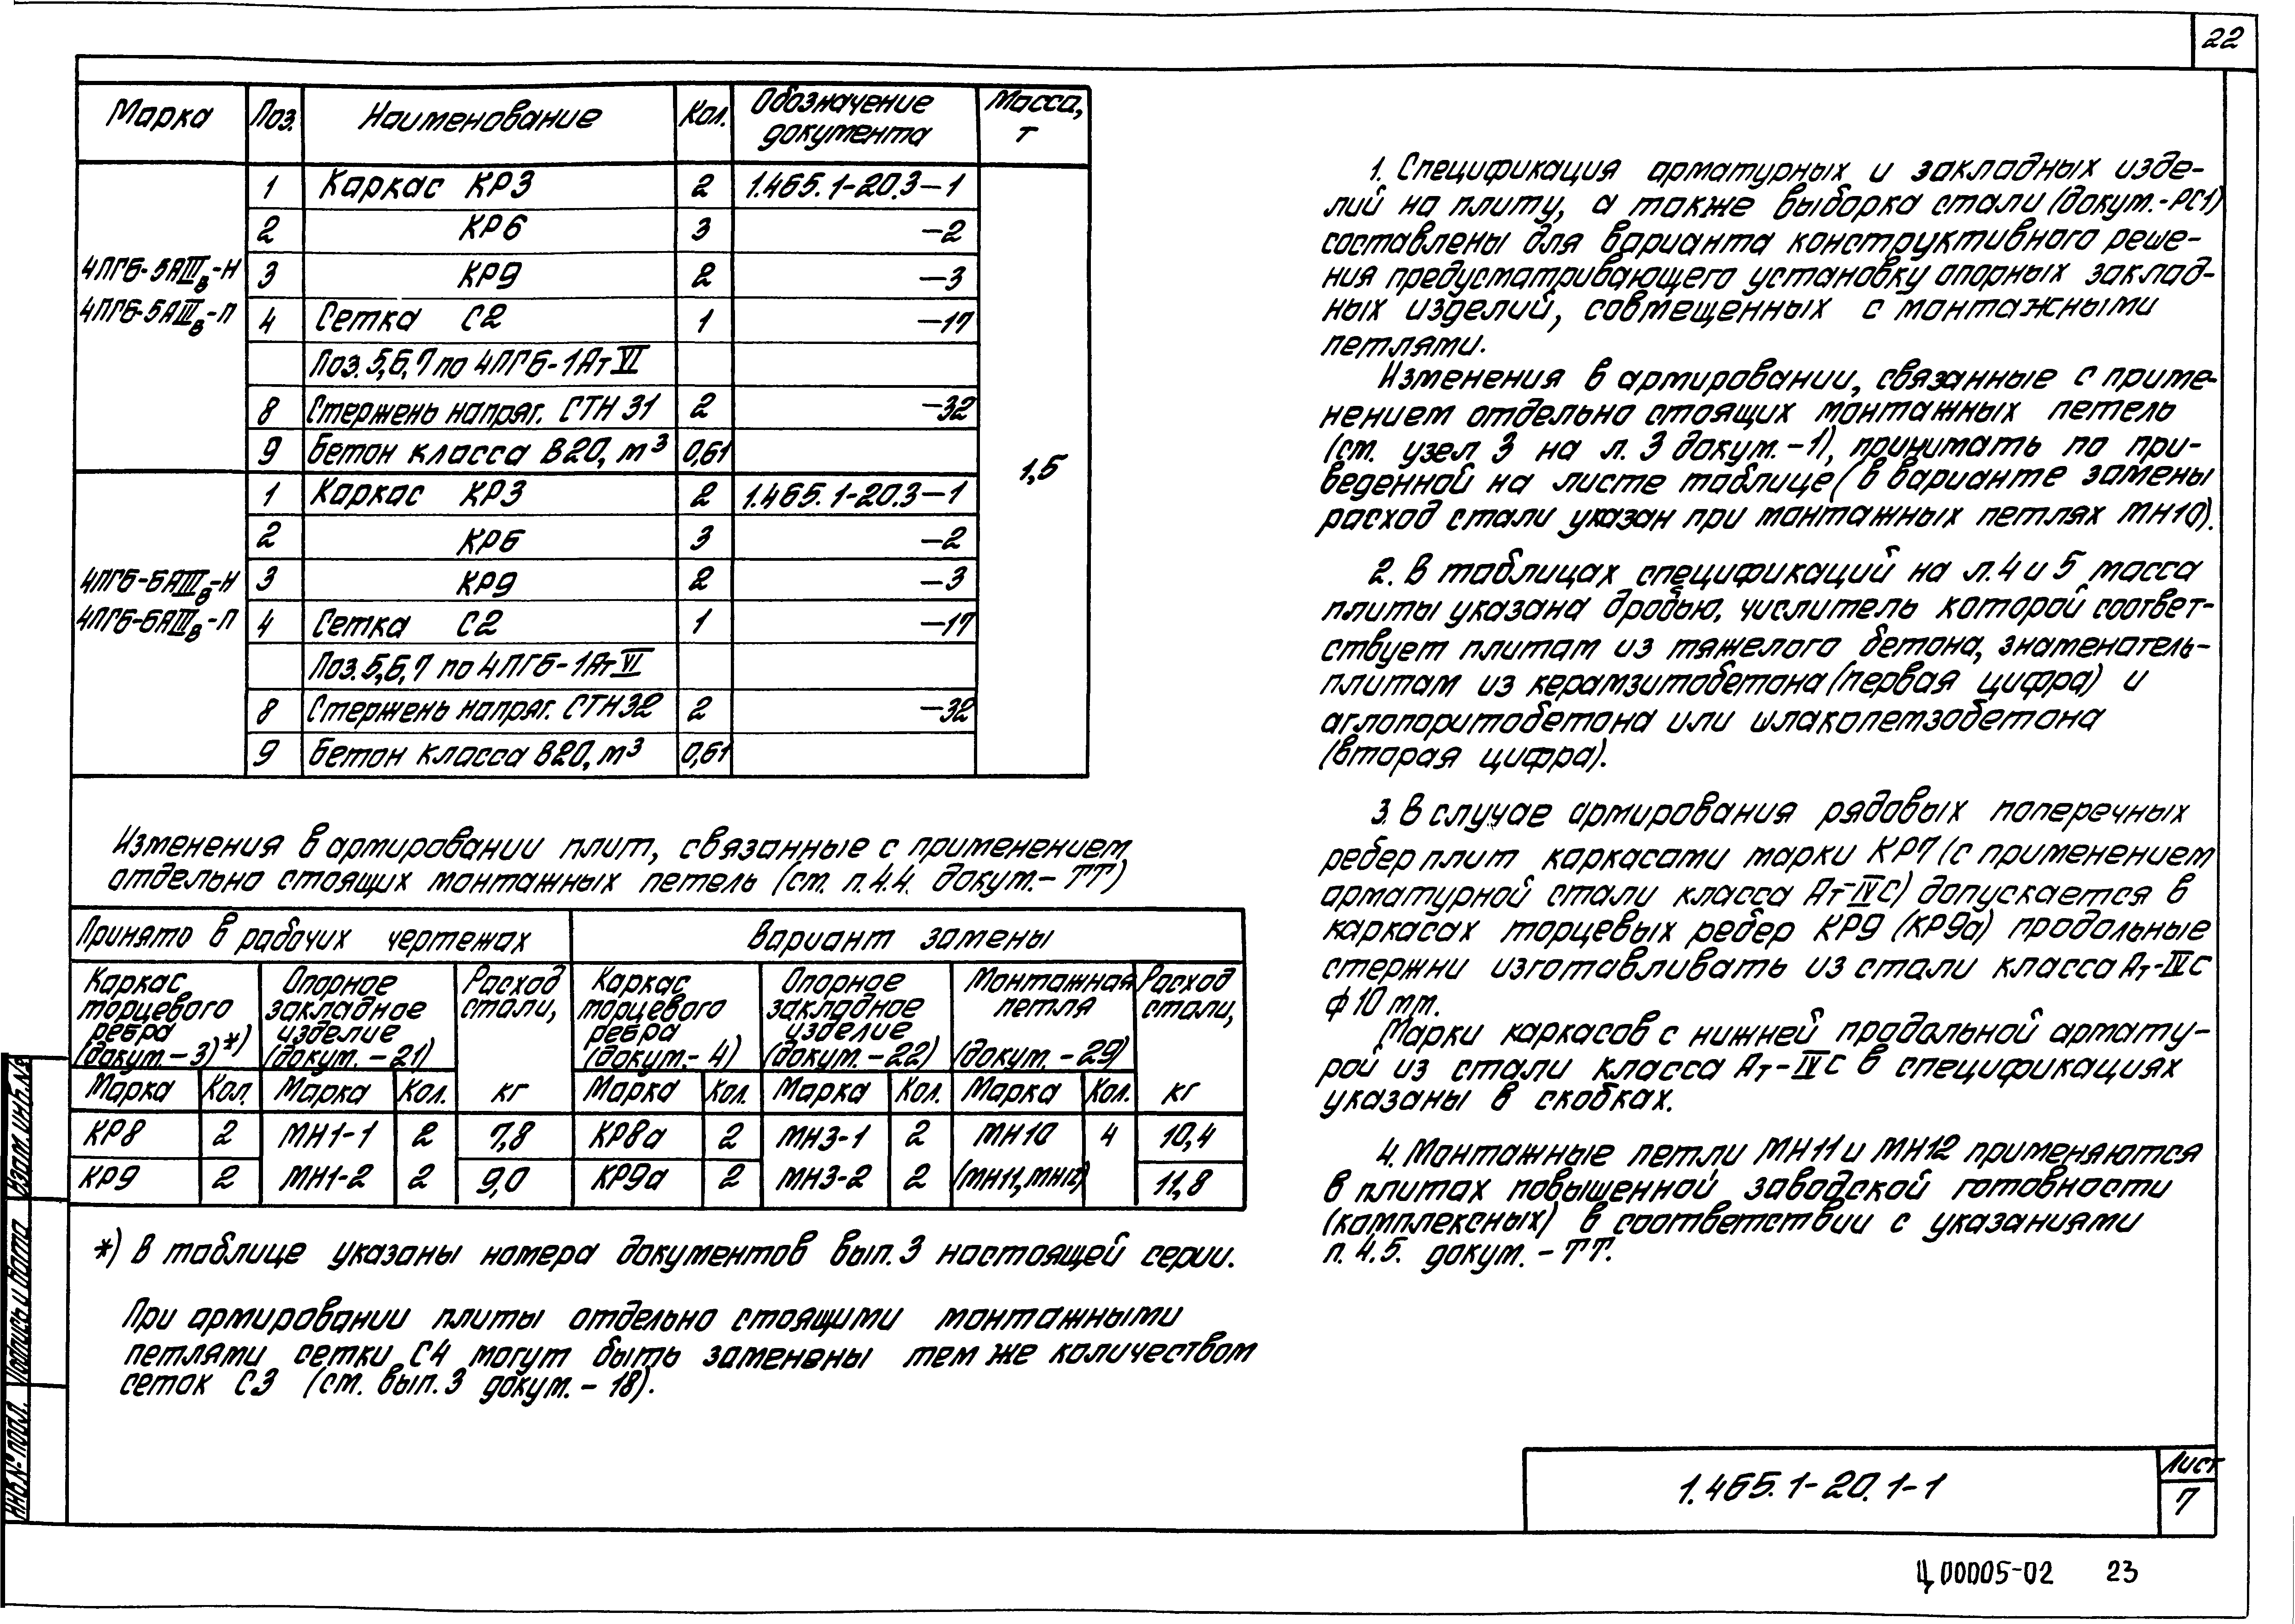 22
Марка Поз. Наименование Кол. Обозначение документа Масса, т
4ПГ6-5АIIIв-Н
4ПГ6-5АIIIв-П
1 Каркас КР3 2 1.465.1-20.3-1
2 КР6 3 -2
3 КР9 2 -3
4 Сетка С2 1 -17
Поз. 5,6,7 по 4ПГ6-1АтVI
8 Стержень напряг. СТН 31 2 -32
9 Бетон класса В20, м³ 0,61
1,5
4ПГ6-6АIIIв-Н
4ПГ6-6АIIIв-П
1 Каркас КР3 2 1.465.1-20.3-1
2 КР6 3 -2
3 КР9 2 -3
4 Сетка С2 1 -17
Поз. 5,6,7 по 4ПГ6-1АтVI
8 Стержень напряг. СТН32 2 -32
9 Бетон класса В20, м³ 0,61
Изменения в армировании плит, связанные с применением
отдельно стоящих монтажных петель (см. п.4.4. докум.-ТТ)
Принято в рабочих чертежах Вариант замены
Каркас торцевого ребра (докум.-3)*) Опорное закладное изделие (докум.-21) Расход стали, кг Каркас торцевого ребра (докум.-4) Опорное закладное изделие (докум.-22) Монтажная петля (докум.-29) Расход стали, кг
Марка Кол. Марка Кол. Марка Кол. Марка Кол. Марка Кол.
КР8 2 МН1-1 2 7,8 КР8а 2 МН3-1 2 МН10 4 10,4
КР9 2 МН1-2 2 9,0 КР9а 2 МН3-2 2 (МН11,МН12) 11,8
*) В таблице указаны номера документов вып.3 настоящей серии.
При армировании плиты отдельно стоящими монтажными
петлями сетки С4 могут быть заменены тем же количеством
сеток С3 (см. вып.3 докум.-18).
1. Спецификация арматурных и закладных изде-
лий на плиту, а также выборка стали (докум.-РС1)
составлены для варианта конструктивного реше-
ния предусматривающего установку опорных заклад-
ных изделий, совмещенных с монтажными
петлями.
Изменения в армировании, связанные с приме-
нением отдельно стоящих монтажных петель
(см. узел 3 на л.3 докум.-1), принимать по при-
веденной на листе таблице (в варианте замены
расход стали указан при монтажных петлях МН10).
2. В таблицах спецификаций на л.4 и 5 масса
плиты указана дробью, числитель которой соответ-
ствует плитам из тяжелого бетона, знаменатель-
плитам из керамзитобетона (первая цифра) и
аглопоритобетона или шлакопемзобетона
(вторая цифра).
3. В случае армирования рядовых поперечных
ребер плит каркасами марки КР7 (с применением
арматурной стали класса Ат-IVС) допускается в
каркасах торцевых ребер КР9 (КР9а) продольные
стержни изготавливать из стали класса Ат-IVС
ф10 мм.
Марки каркасов с нижней продольной армату-
рой из стали класса Ат-IVС в спецификациях
указаны в скобках.
4. Монтажные петли МН11 и МН12 применяются
в плитах повышенной заводской готовности
(комплексных) в соответствии с указаниями
п.4.5. докум.-ТТ.
Инв.№ подл. Подпись и дата Взам.инв.№
1.465.1-20.1-1
Лист
7
Ц00005-02 23